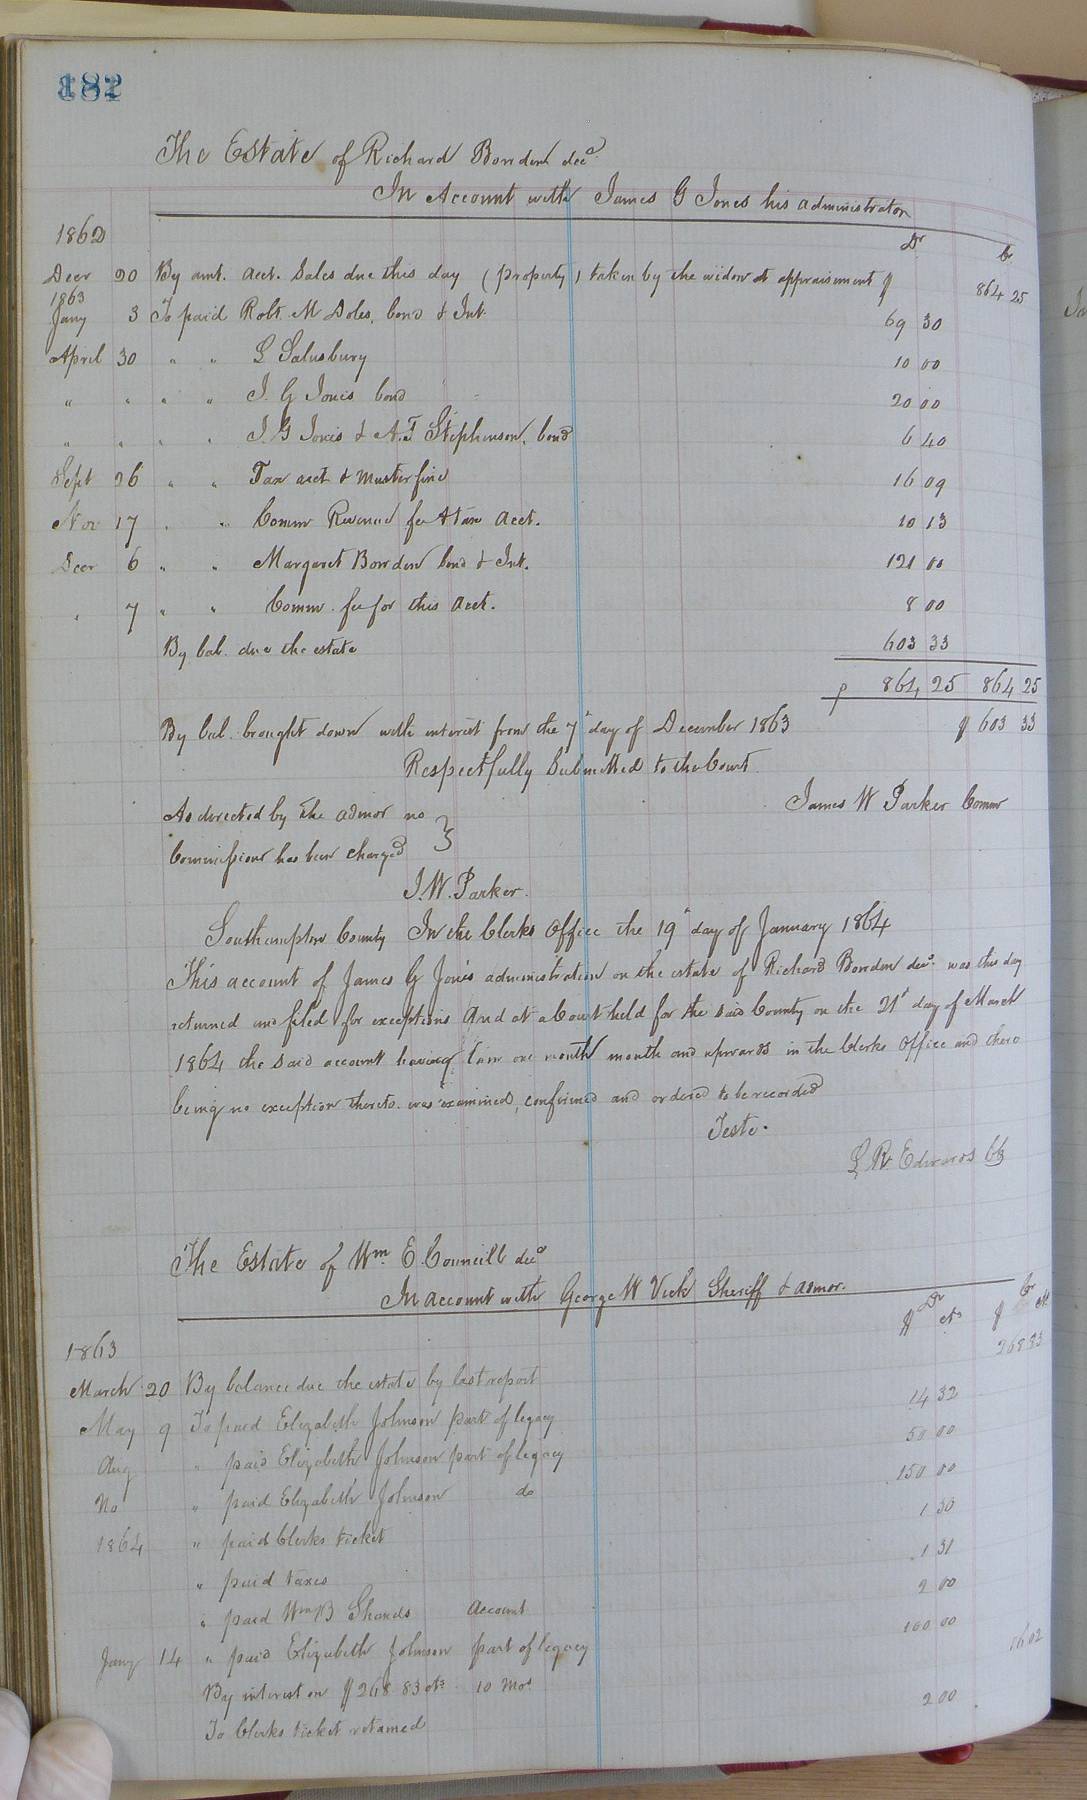 182
The Estate of Richard Borden decd
In Account with James G Jones his administrator
1862
Dr Cr
Decr 20 By amt. acct. Sales due this day (property) taken by the widow at appraisement $ 864 25
1863
Jany 3 To paid Robt. M Doles, bond & Int. 69 30
April 30 " " L Salusbury 10 00
" " " " J. G Jones bond 20 00
" " " " J. G Jones & A. T Stephenson, bond 6 40
Sept 26 " " Tax acct & Muster fine 16 09
Nov 17 " " Commr Revenue fee & tax acct. 10 13
Decr 6 " " Margaret Borden bond & Int. 121 00
" 7 " " Commr. fee for this acct. 8 00
By bal. due the estate 603 33
$ 864 25 864 25
By bal. brought down with interest from the 7th day of December 1863 $ 603 33
Respectfully Submitted to the Court
James W Parker Commr
As directed by the admor no
Commission has been charged }
J. W. Parker.
Southampton County In the Clerks Office the 19th day of January 1864
This account of James G Jones administration on the estate of Richard Borden decd. was this day
returned and filed for exceptions And at a Court held for the said County on the 21st day of March
1864 the said account having lain one month month and upwards in the Clerks Office and there
being no exception thereto was examined, confirmed and ordered to be recorded
Teste.
L R. Edwards Clk
The Estate of Wm. E. Councill decd
In account with George W Vick Sheriff & admor.
Dr Cr
$ cts $ cts
1863
March 20 By balance due the estate by last report 268 83
May 9 To paid Elizabeth Johnson part of legacy 14 32
Aug " paid Elizabeth Johnson part of legacy 50 00
No " paid Elizabeth Johnson do 150 00
1864 " paid Clerks ticket 1 30
" paid taxes 1 31
" paid Wm B Shands Account 2 00
Jany 14 " paid Elizabeth Johnson part of legacy 100 00
By interest on $268 83 cts 10 Mos 16 02
To Clerks ticket retained 2 00